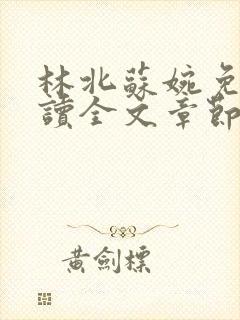 林北蘇婉免
讀全文章節
黃劍標